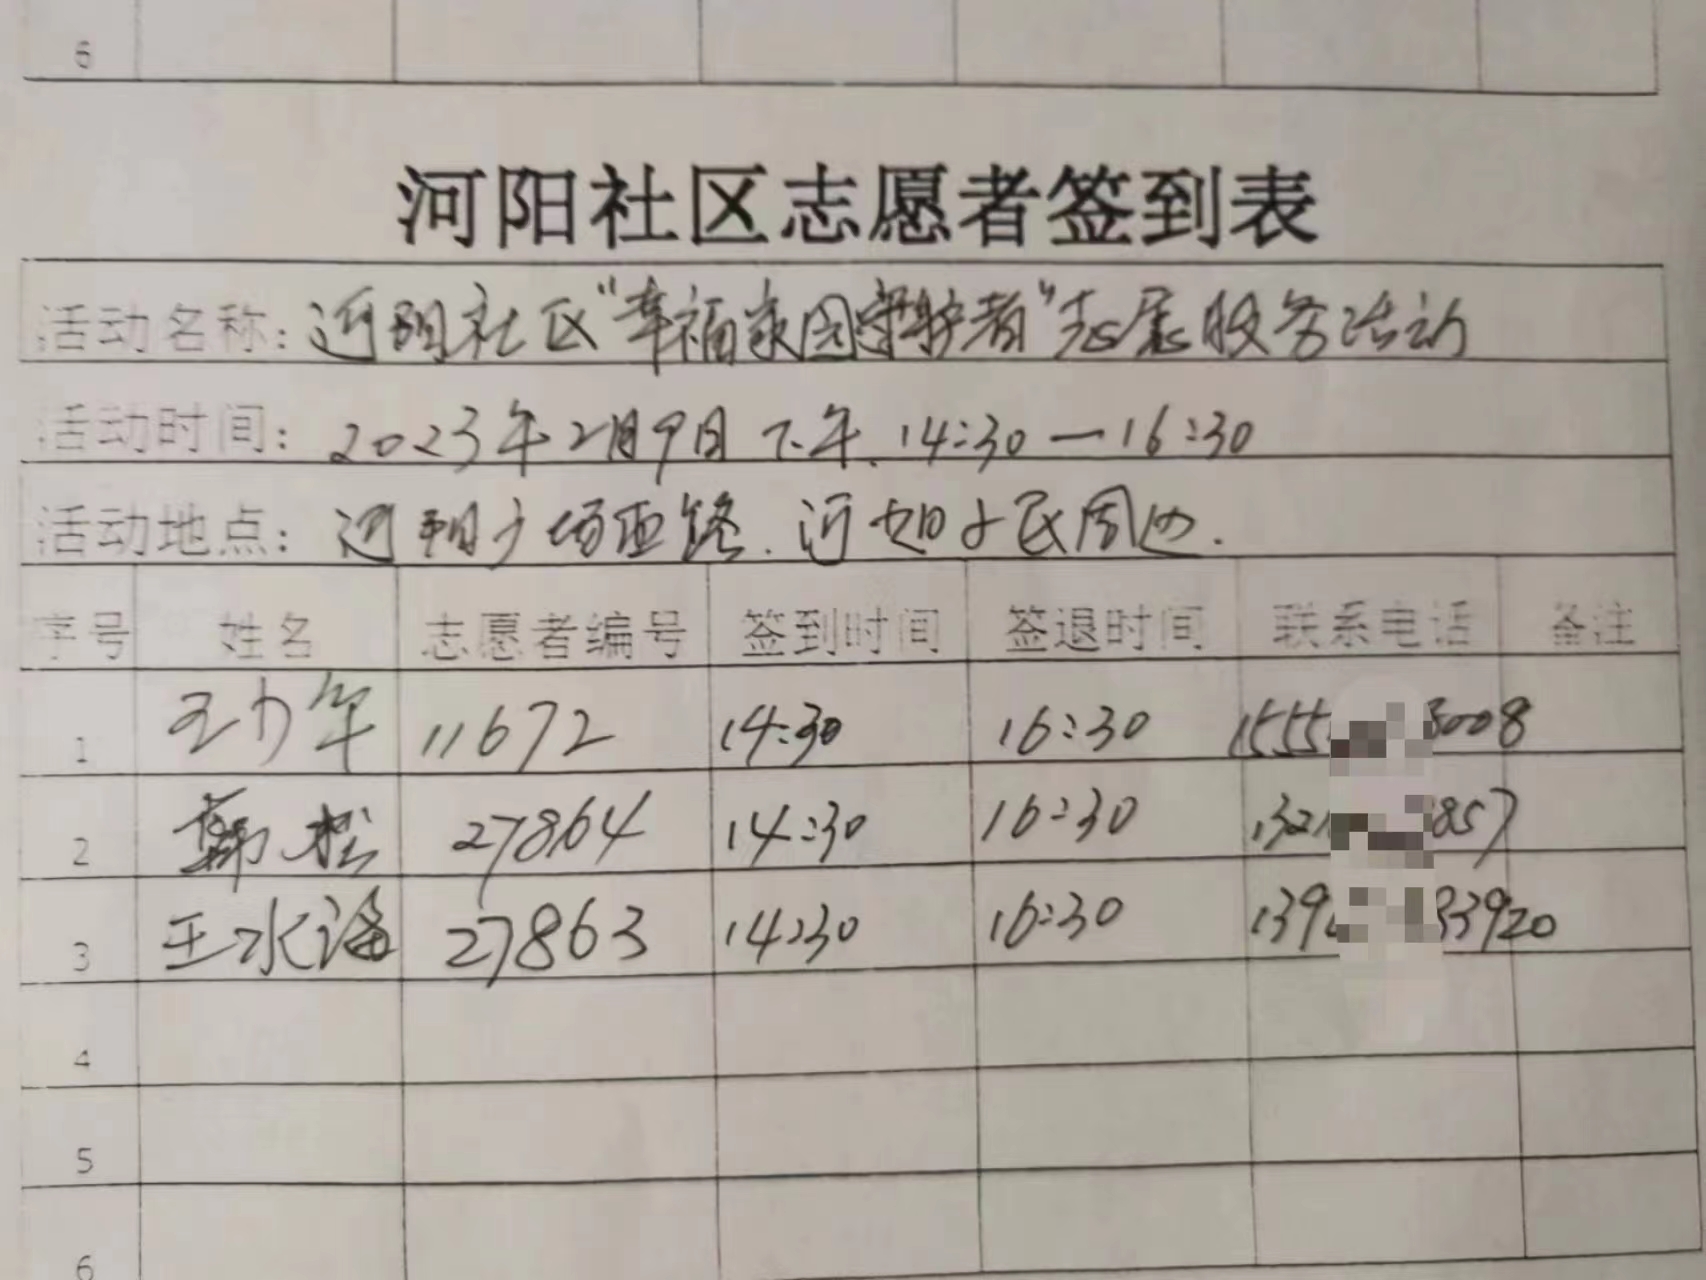 6
河阳社区志愿者签到表
活动名称：河阳社区"幸福家园守护者"志愿服务活动
活动时间：2023年2月9日下午.14:30—16:30
活动地点：河阳广场西路.河 民周边.
序号 姓名 志愿者编号 签到时间 签退时间 联系电话 备注
1 11672 14:30 16:30 1555 3008
2 韩松 27864 14:30 16:30 132 857
3 王水海 27863 14:30 16:30 139 83920
4
5
6